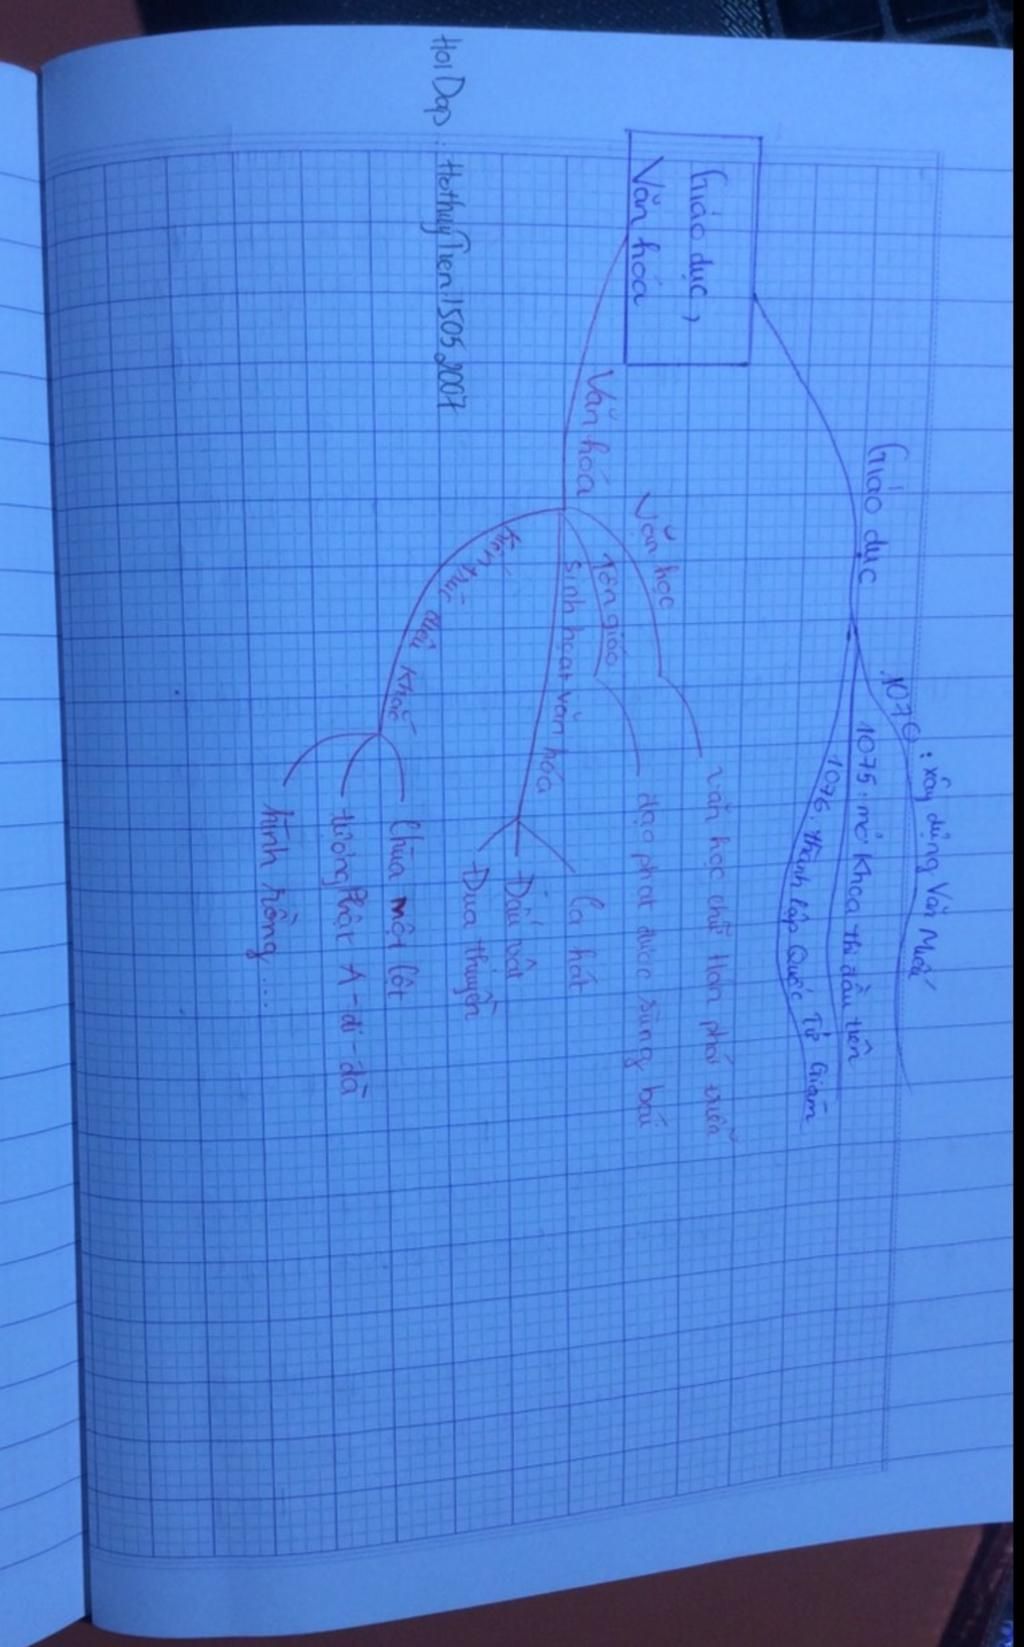 Giáo dục,
Văn hóa
Giáo dục
1070: xây dựng Văn Miếu
1075: mở khoa thi đầu tiên
1076: thành lập Quốc Tử Giám
Văn hóa
Văn học
văn học chữ Hán phát triển
Tôn giáo
đạo phật được sùng bái
Sinh hoạt văn hóa
Ca hát
Đấu vật
Đua thuyền
Kiến trúc điêu khắc
Chùa một cột
tượng Phật A-di-đà
hình rồng....
Hoi Dap: Hothuytien15052007